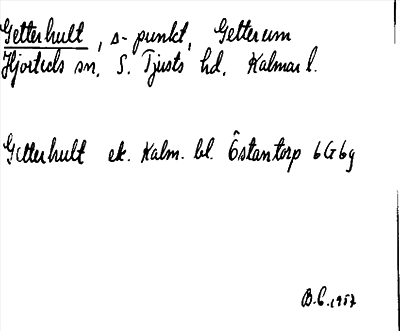 Getterhult, s-punkt, Getterum
Hjorteds sn, S. Tjusts hd, Kalmar l.
Getterhult ek. Kalm. bl. Östantorp 6G6g
B.C. 1957